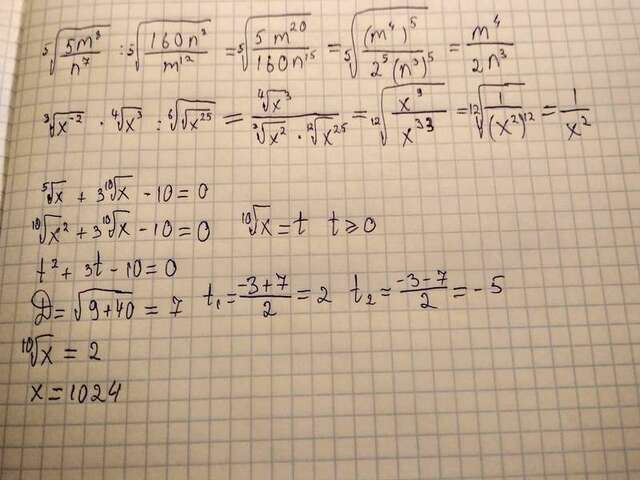 ⁵√(5m⁸/n⁷) : ⁵√(160n⁸/m¹²) = ⁵√(5m²⁰/160n¹⁵) = ⁵√((m⁴)⁵/2⁵(n³)⁵) = m⁴/2n³
³√x⁻² · ⁴√x³ : ⁶√√x²⁵ = ⁴√x³/(³√x² · ¹²√x²⁵) = ¹²√(x⁹/x³³) = ¹²√(1/(x²)¹²) = 1/x²
⁵√x + 3¹⁰√x - 10 = 0
¹⁰√x² + 3¹⁰√x - 10 = 0 ¹⁰√x = t t ⩾ 0
t² + 3t - 10 = 0
D = √(9+40) = 7 t₁ = (-3+7)/2 = 2 t₂ = (-3-7)/2 = -5
¹⁰√x = 2
x = 1024